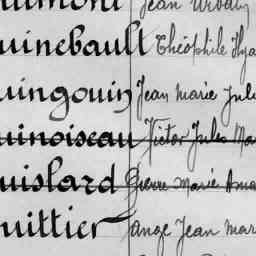 uimont Jean Urbain
uinebault Théophile Hya
uingouin Jean Marie Jule
uinoiseau Victor Jules Ma
uislard Pierre Marie Ama
uittier Ange Jean Mar